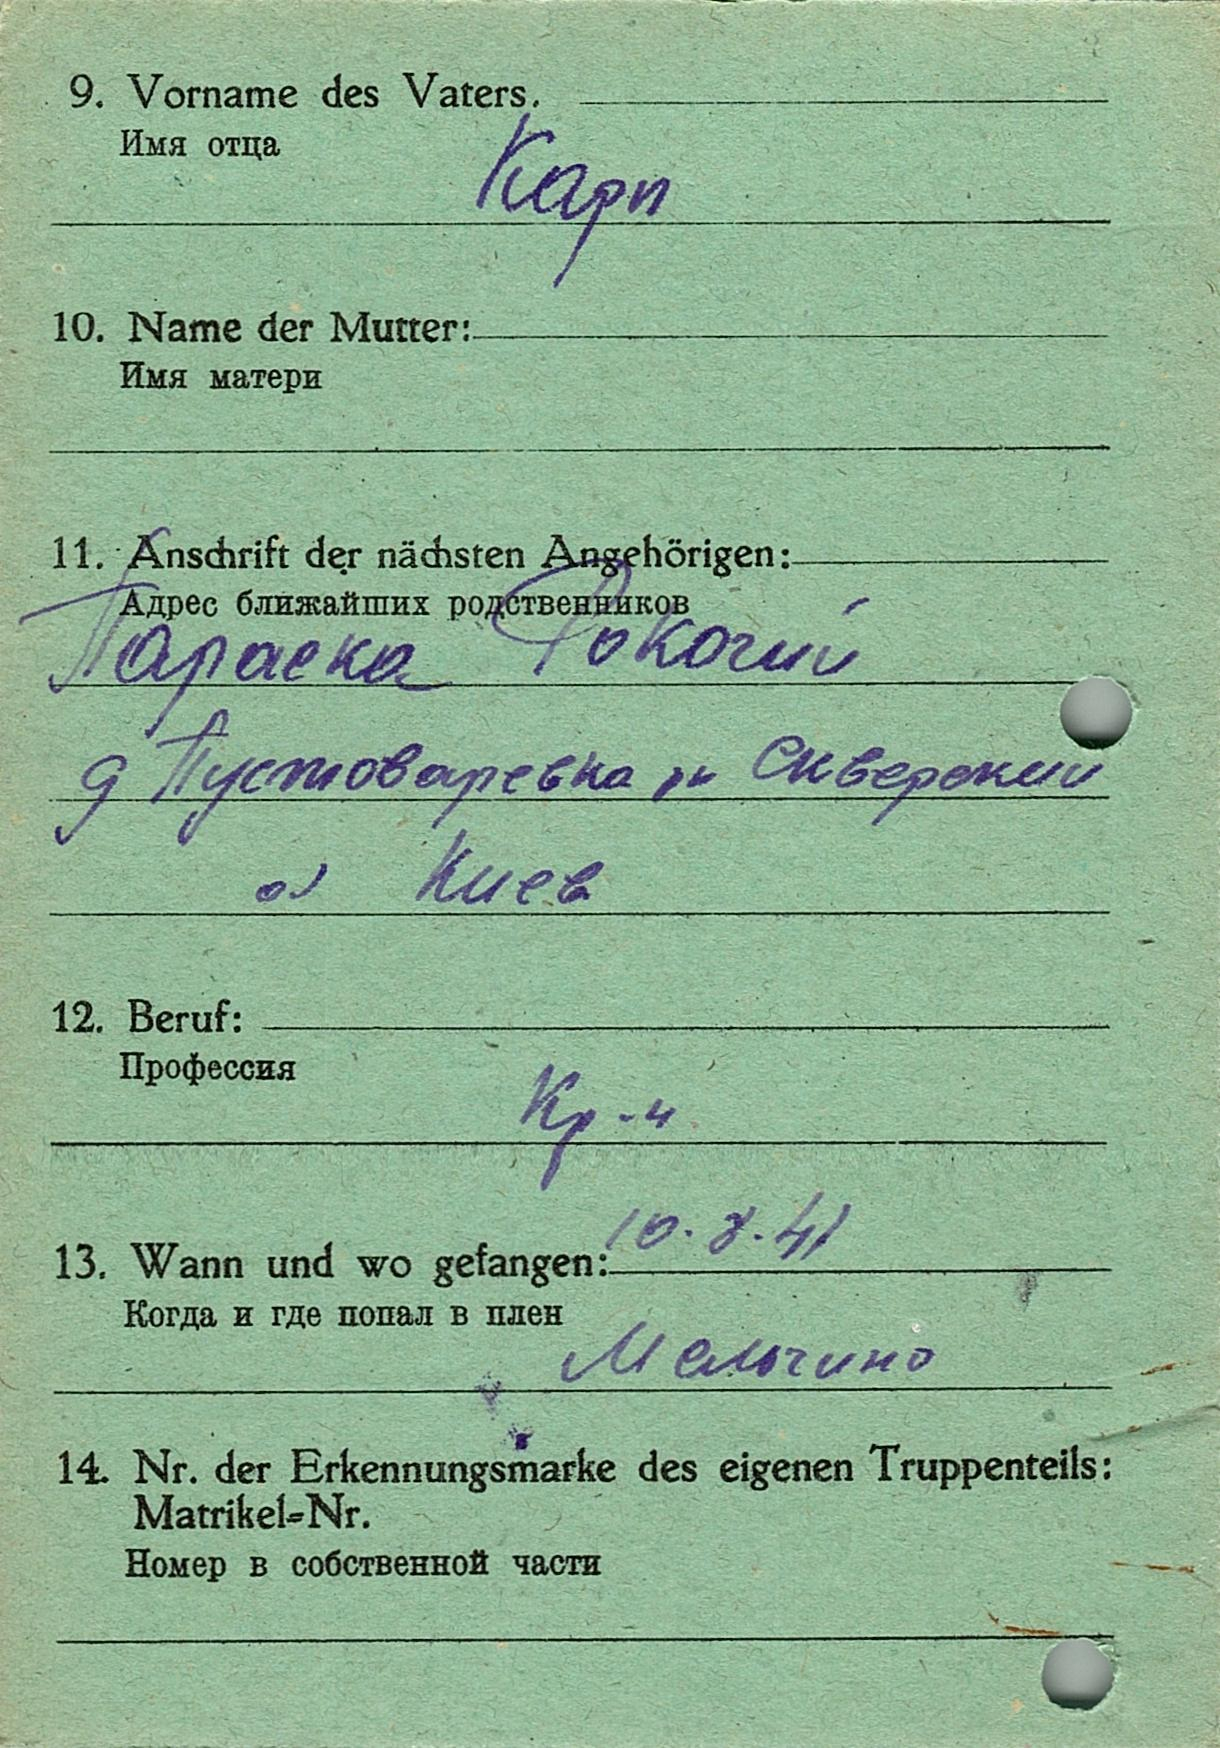 9. Vorname des Vaters.
Имя отца
Карп
10. Name der Mutter:
Имя матери
11. Anschrift der nächsten Angehörigen:
Адрес ближайших родственников
Параска
д Пустоваревка рн Сквереский
о Киев
12. Beruf:
Профессия
Кр-н
13. Wann und wo gefangen: 10.8.41
Когда и где попал в плен
14. Nr. der Erkennungsmarke des eigenen Truppenteils:
Matrikel=Nr.
Номер в собственной части